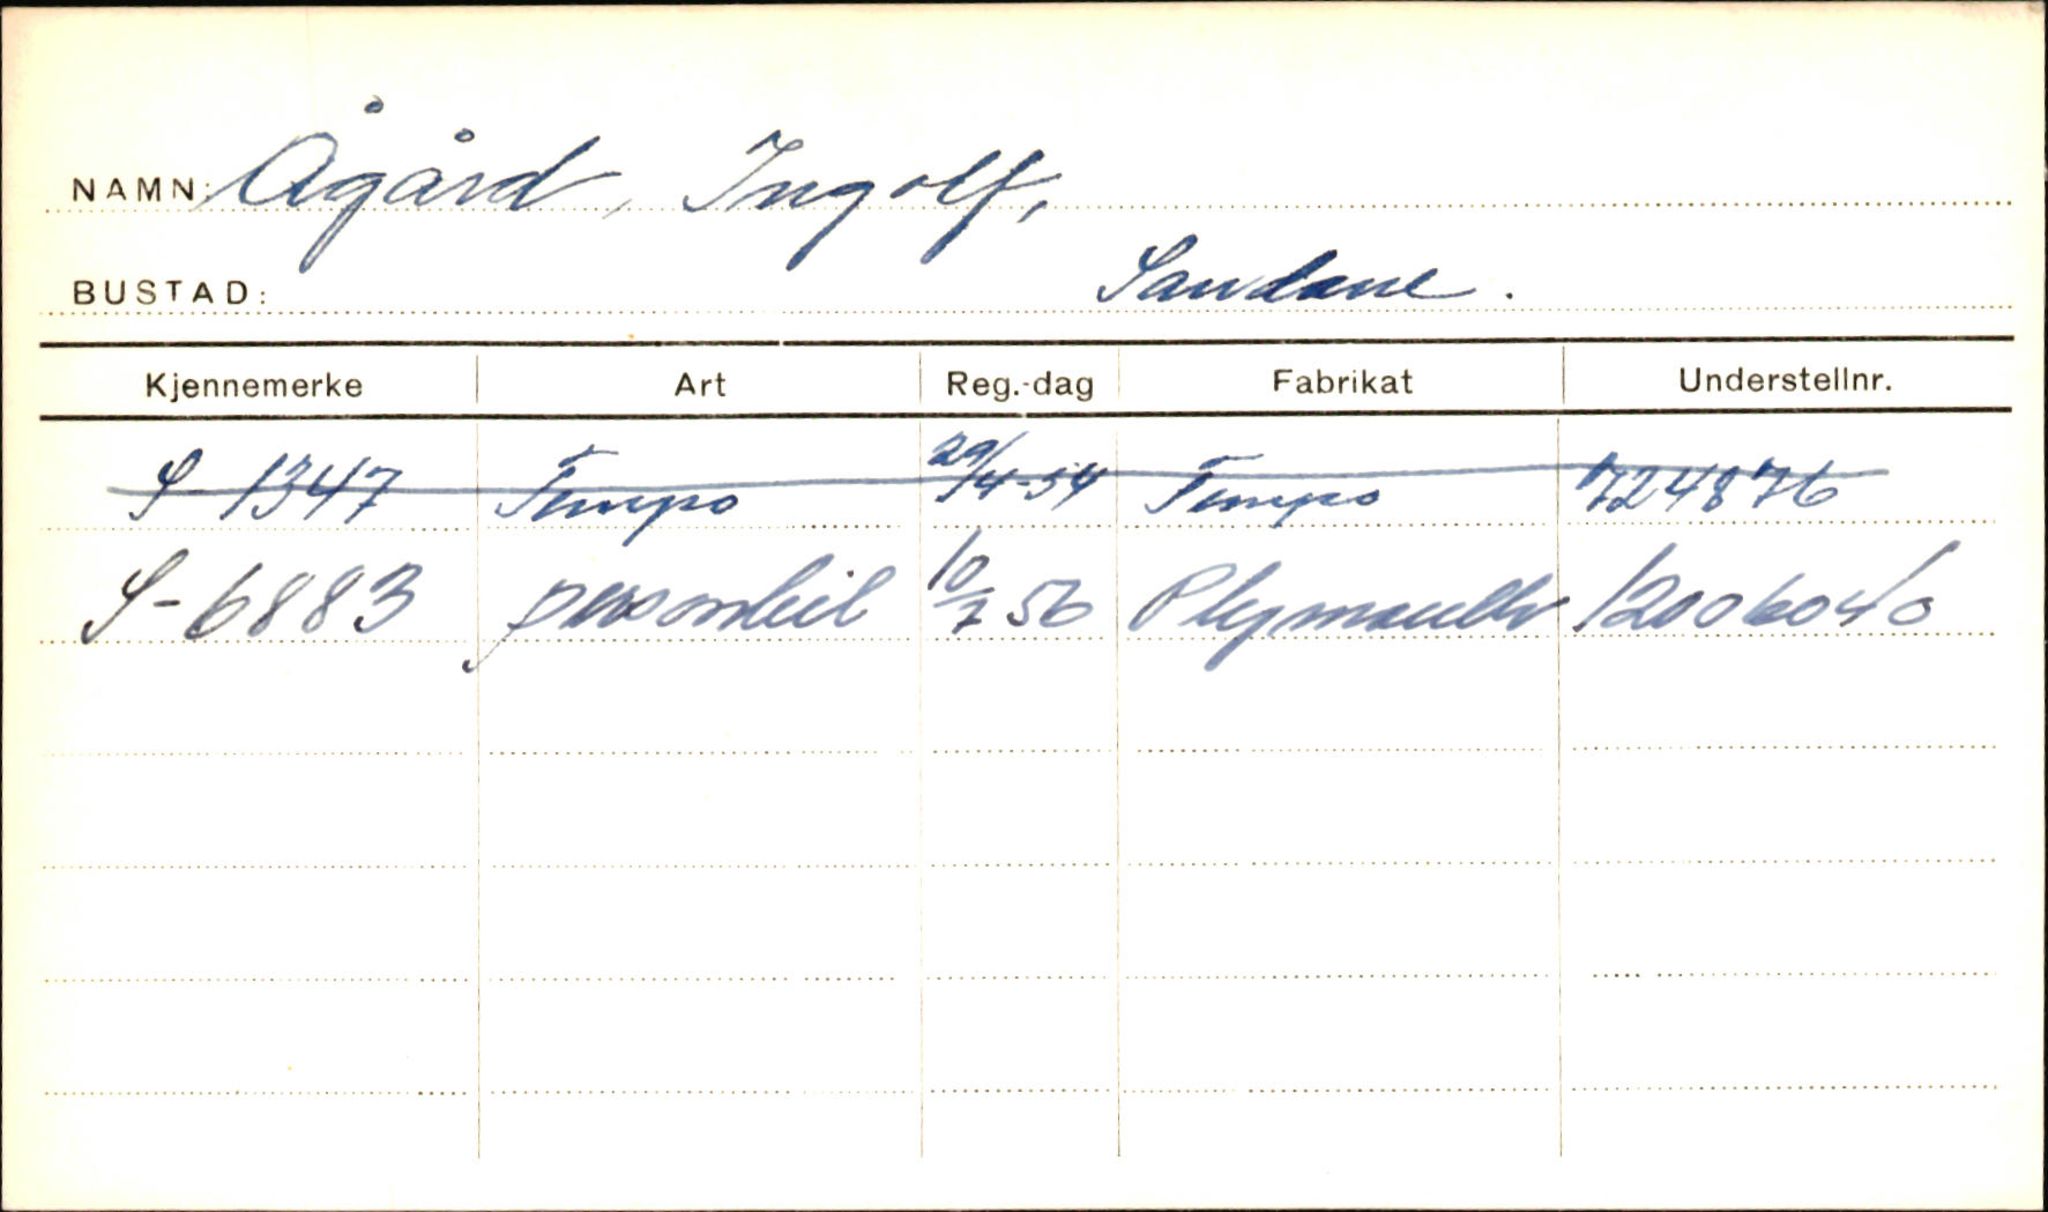 NAMN: Ågård, Ingolf,
BUSTAD: Sandane.
Kjennemerke Art Reg.-dag Fabrikat Understellnr.
S-1347 Tempo 29/4-54 Tempo 724876
S-6883 personbil 10/7 56 Plymouth 12006040